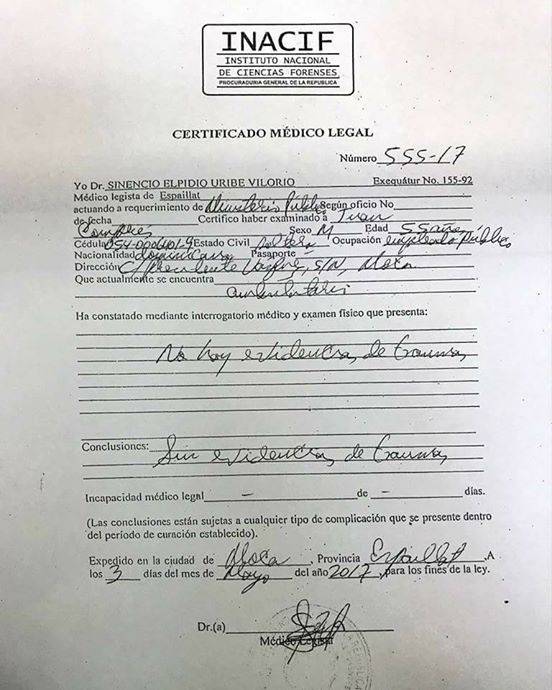 INACIF
INSTITUTO NACIONAL
DE CIENCIAS FORENSES
PROCURADURIA GENERAL DE LA REPUBLICA
CERTIFICADO MÉDICO LEGAL
Número 555-17
Yo Dr. SINENCIO ELPIDIO URIBE VILORIO Exequátur No. 155-92
Médico legista de Espaillat
actuando a requerimiento de Ministerio Público Según oficio No
de fecha Certifico haber examinado a
Sexo M Edad 55 años
Cédula Estado Civil soltero Ocupación empleado Público
Nacionalidad dominicana Pasaporte
Dirección C/Presidente S/N, Moca
Que actualmente se encuentra
Ha constatado mediante interrogatorio médico y examen físico que presenta:
No hay evidencia de trauma
Conclusiones: Sin evidencia de trauma
Incapacidad médico legal - de - días.
(Las conclusiones están sujetas a cualquier tipo de complicación que se presente dentro
del período de curación establecido).
Expedido en la ciudad de Moca, Provincia Espaillat .A
los 3 días del mes de Mayo del año 2017, para los fines de la ley.
Dr.(a)
Médico Legista